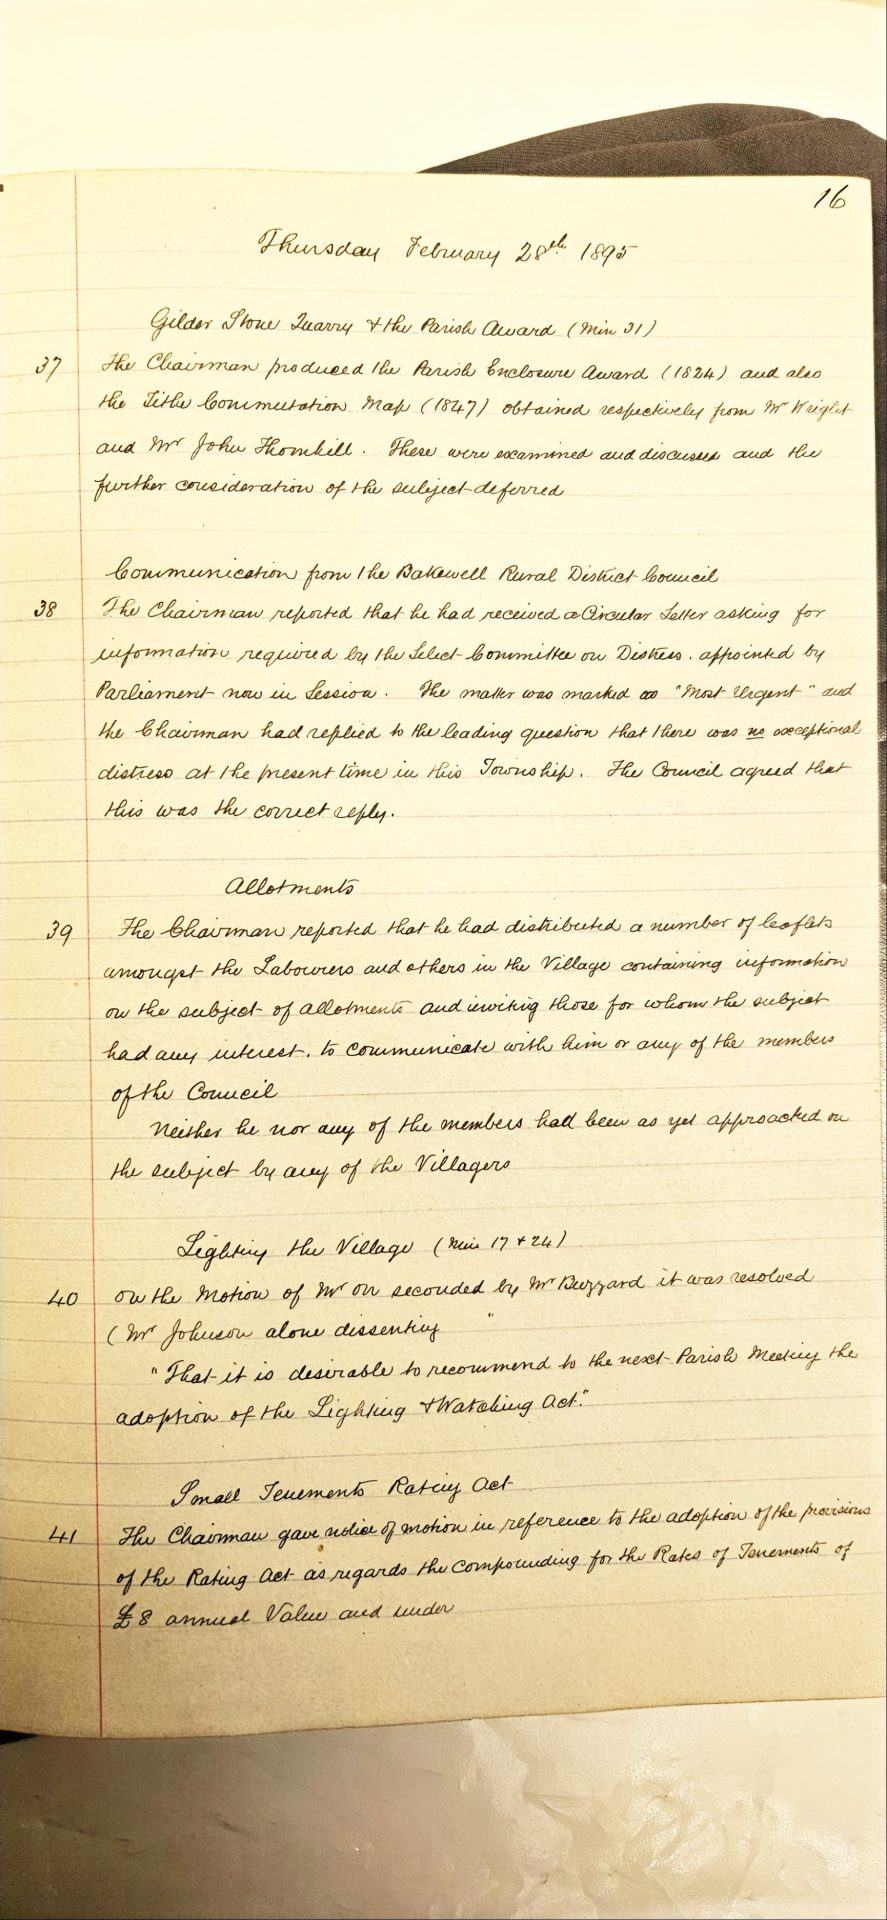 16
Thursday February 28th 1895
Gilder Stone Quarry & the Parish Award (Min 31)
37 The Chairman produced the Parish Enclosure Award (1824) and also
the Tithe Commutation Map (1847) obtained respectively from Mr Wright
and Mr John Thornhill. These were examined and discussed and the
further consideration of the subject deferred
Communication from the Bakewell Rural District Council
38 The Chairman reported that he had received a Circular Letter asking for
information required by the Select Committee on Distress. appointed by
Parliament now in Session. The matter was marked as "Most Urgent" and
the Chairman had replied to the leading question that there was no exceptional
distress at the present time in this Township. The Council agreed that
this was the correct reply.
Allotments
39 The Chairman reported that he had distributed a number of leaflets
amongst the Labourers and others in the Village containing information
on the subject of allotments and inviting those for whom the subject
had any interest. to communicate with him or any of the members
of the Council
Neither he nor any of the members had been as yet approached on
the subject by any of the Villagers
Lighting the Village (Min 17 & 24)
40 On the Motion of Mr Orr seconded by Mr Buzzard it was resolved
(Mr Johnson alone dissenting "
"That it is desirable to recommend to the next Parish Meeting the
adoption of the Lighting & Watching Act."
Small Tenements Rating Act
41 The Chairman gave notice of motion in reference to the adoption of the provisions
of the Rating Act as regards the compounding for the Rates of Tenements of
£8 annual Value and under